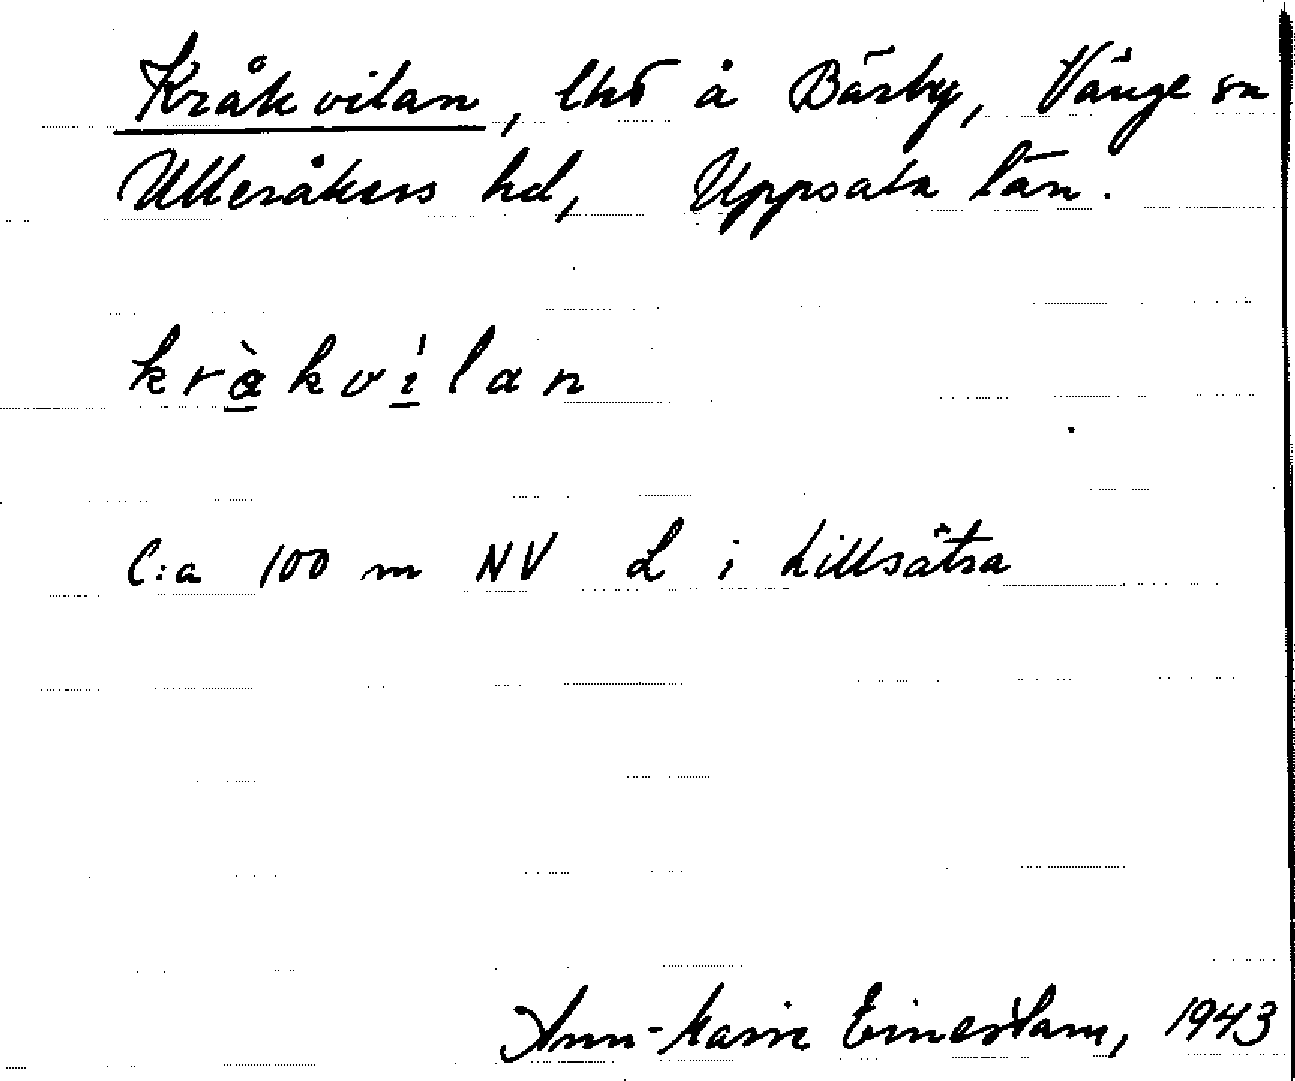 Kråkvilan, lhd å Bärby, Vänge sn
Ulleråkers hd, Uppsala län.
kràkvílan
C:a 100 m NV L i Lillsätra
Ann-Marie, 1943